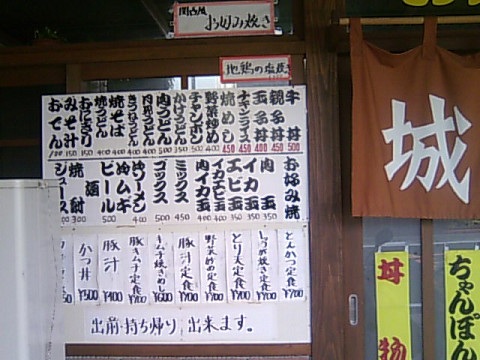 関西風
お好み焼き
地鶏の塩焼き
牛丼 500
親子丼 450
玉子丼 450
チキンライス 450
焼めし 450
野菜炒め 400
チャンポン 500
かけうどん
肉うどん 500
月見うどん 400
きつねうどん 400
焼そば
焼うどん
おにぎり 150
みそ汁 150
おでん 100
お好み焼
肉玉
イカ玉 350
エビ玉 350
イカエビ玉 400
肉イカ玉 400
ミックス 450
ゴックス 500
ラーメン 400
ビール 500
焼酎 300
ジュース
とんかつ定食 ¥700
しょうが焼き定食 ¥700
とり天定食 ¥700
野菜炒め定食 ¥700
豚汁定食 ¥700
キムチ焼きめし ¥600
豚汁 ¥400
かつ丼 ¥500
出前・持ち帰り、出来ます。
城
丼物
ちゃんぽん